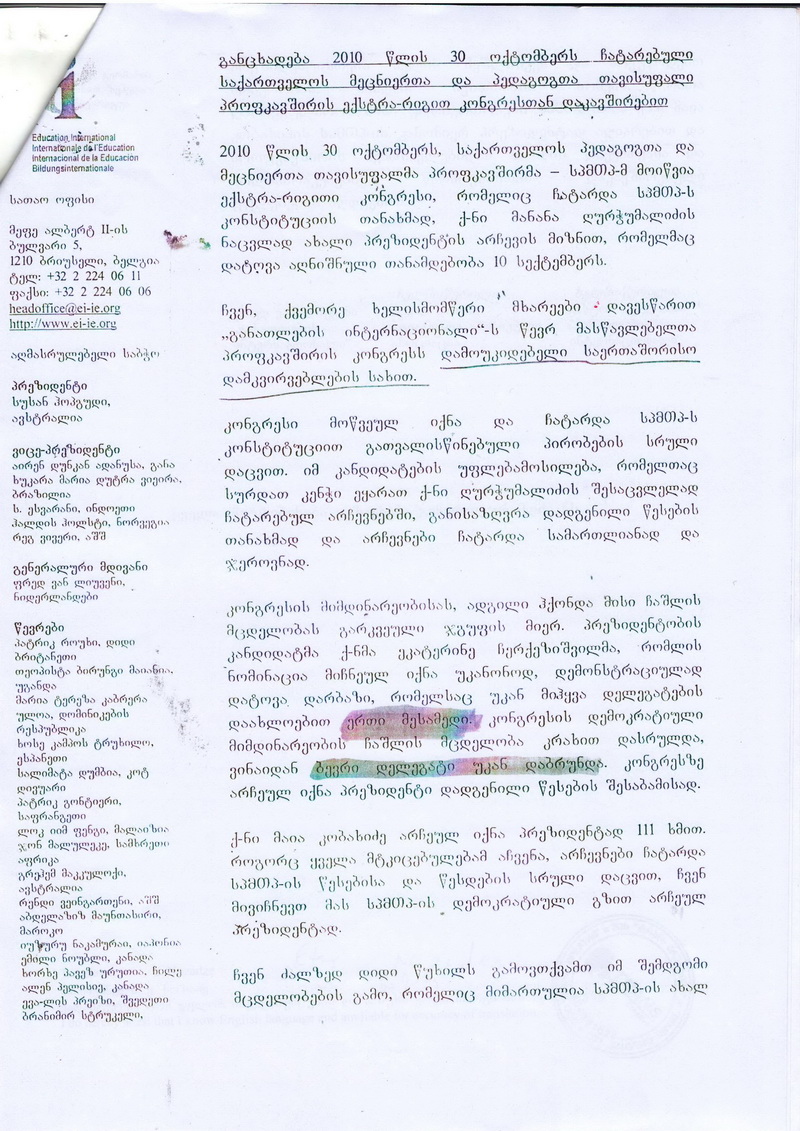 Education International
Internationale de l'Education
Internacional de la Educación
Bildungsinternationale
სათაო ოფისი
მეფე ალბერტ II-ის
ბულვარი 5,
1210 ბრიუსელი, ბელგია
ტელ: +32 2 224 06 11
ფაქსი: +32 2 224 06 06
headoffice@ei-ie.org
http://www.ei-ie.org
აღმასრულებელი საბჭო
პრეზიდენტი
სუსან ჰოპგუდი,
ავსტრალია
ვიცე-პრეზიდენტი
აირენ დუნკან ადანუსა, განა
ხუკარა მარია დუტრა ვიეირა,
ბრაზილია
ს. ესვარანი, ინდოეთი
ჰალდის ჰოლსტი, ნორვეგია
რეგ ვივერი, აშშ
გენერალური მდივანი
ფრედ ვან ლიუვენი,
ნიდერლანდები
წევრები
პატრიკ როუხი, დიდი
ბრიტანეთი
თეოპისტა ბირუნგი მაიანია,
უგანდა
მარია ტერეზა კაბრერა
ულოა, დომინიკების
რესპუბლიკა
ხოსე კამპოს ტრუხილო,
ესპანეთი
სალიმატა დუმბია, კოტ
დივუარი
პატრიკ გონტიერი,
საფრანგეთი
ლოკ იიმ ფენგი, მალაიზია
ჯონ მალულეკე, სამხრეთ
აფრიკა
გრეჰემ მაკკულოქი,
ავსტრალია
რენდი ვეინგართენი, აშშ
აბდელაზიზ მაუნთასირი,
მაროკო
იუზურუ ნაკამურაი, იაპონია
ემილი ნოუბლი, კანადა
ხორხე პავეზ ურუთია, ჩილე
ალენ პელისიე, კანადა
ევა-ლის პრეიზი, შვედეთი
ბრანიმირ სტრუკელი,
განცხადება 2010 წლის 30 ოქტომბერს ჩატარებული
საქართველოს მეცნიერთა და პედაგოგთა თავისუფალი
პროფკავშირის ექსტრა-რიგით კონგრესთან დაკავშირებით
2010 წლის 30 ოქტომბერს, საქართველოს პედაგოგთა და
მეცნიერთა თავისუფალმა პროფკავშირმა – სპმთპ-მ მოიწვია
ექსტრა-რიგითი კონგრესი, რომელიც ჩატარდა სპმთპ-ს
კონსტიტუციის თანახმად, ქ-ნი მანანა ღურჭუმალიძის
ნაცვლად ახალი პრეზიდენტის არჩევის მიზნით, რომელმაც
დატოვა აღნიშნული თანამდებობა 10 სექტემბერს.
ჩვენ, ქვემორე ხელისმომწერი მხარეები დავესწარით
„განათლების ინტერნაციონალი“-ს წევრ მასწავლებელთა
პროფკავშირის კონგრესს დამოუკიდებელი საერთაშორისო
დამკვირვებლების სახით.
კონგრესი მოწვეულ იქნა და ჩატარდა სპმთპ-ს
კონსტიტუციით გათვალისწინებული პირობების სრული
დაცვით. იმ კანდიდატების უფლებამოსილება, რომელთაც
სურდათ კენჭი ეყარათ ქ-ნი ღურჭუმალიძის შესაცვლელად
ჩატარებულ არჩევნებში, განისაზღვრა დადგენილი წესების
თანახმად და არჩევნები ჩატარდა სამართლიანად და
ჯეროვნად.
კონგრესის მიმდინარეობისას, ადგილი ჰქონდა მისი ჩაშლის
მცდელობას გარკვეული ჯგუფის მიერ. პრეზიდენტობის
კანდიდატმა ქ-ნმა ეკატერინე ჩერქეზიშვილმა, რომლის
ნომინაცია მიჩნეულ იქნა უკანონოდ, დემონსტრაციულად
დატოვა დარბაზი, რომელსაც უკან მიჰყვა დელეგატების
დაახლოებით ერთი მესამედი. კონგრესის დემოკრატიული
მიმდინარეობის ჩაშლის მცდელობა კრახით დასრულდა,
ვინაიდან ბევრი დელეგატი უკან დაბრუნდა. კონგრესზე
არჩეულ იქნა პრეზიდენტი დადგენილი წესების შესაბამისად.
ქ-ნი მაია კობახიძე არჩეულ იქნა პრეზიდენტად 111 ხმით.
როგორც ყველა მტკიცებულებამ აჩვენა, არჩევნები ჩატარდა
სპმთპ-ის წესებისა და წესდების სრული დაცვით, ჩვენ
მივიჩნევთ მას სპმთპ-ის დემოკრატიული გზით არჩეულ
პრეზიდენტად.
ჩვენ ძალზედ დიდი წუხილს გამოვთქვამთ იმ შემდგომი
მცდელობების გამო, რომელიც მიმართულია სპმთპ-ის ახალ